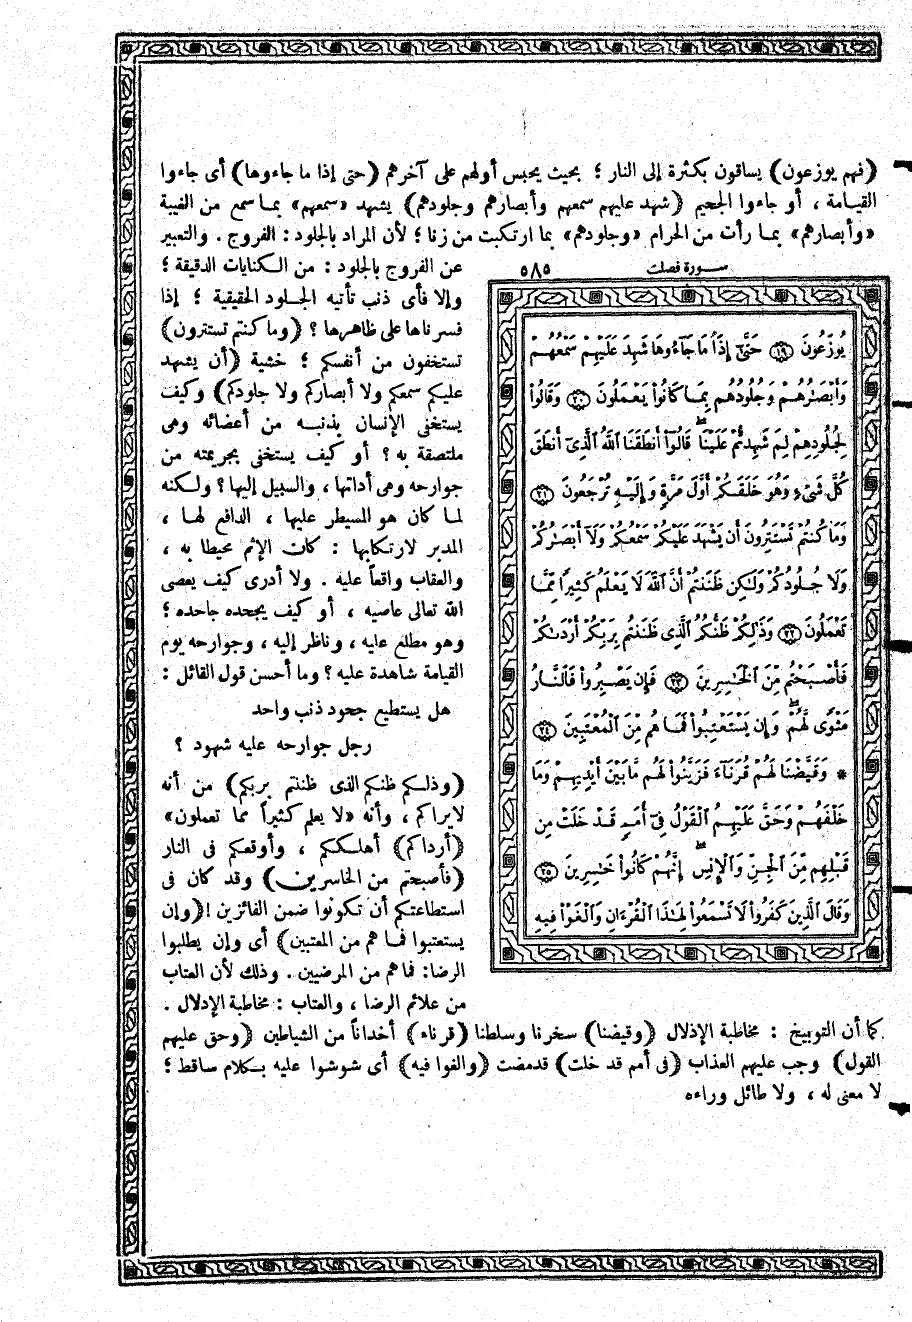 (فهم يوزعون) يساقون بكثرة إلى النار ؛ بحيث يحبس أولهم على آخرهم (حتى إذا ما جاءوها) أى جاءوا
القيامة ، أو جاءوا الجحيم (شهد عليهم سمعهم وأبصارهم وجلودهم) يشهد «سمعهم» بما سمع من الغيبة
«وأبصارهم» بما رأت من الحرام «وجلودهم» بما ارتكبت من زنا ؛ لأن المراد بالجلود : الفروج . والتعبير
عن الفروج بالجلود : من الكنايات الدقيقة ؛
وإلا فأى ذنب تأتيه الجلود الحقيقية ؛ إذا
فسرناها على ظاهرها ؟ (وما كنتم تستترون)
تستخفون من أنفسكم ؛ خشية (أن يشهد
عليكم سمعكم ولا أبصاركم ولا جلودكم) وكيف
يستخفى الإنسان بذنبه من أعضائه وهى
ملتصقة به ؟ أو كيف يستخفى بجريمته من
جوارحه وهى أداتها ، والسبيل إليها ؟ ولكنه
لما كان هو المسيطر عليها ، الدافع لها ،
المدبر لارتكابها : كان الإثم محيطا به ،
والعقاب واقعاً عليه . ولا أدرى كيف يعصى
الله تعالى عاصيه ، أو كيف يجحده جاحده ؛
وهو مطلع عليه ، وناظر إليه ، وجوارحه يوم
القيامة شاهدة عليه ؟ وما أحسن قول القائل :
هل يستطيع جحود ذنب واحد
رجل جوارحه عليه شهود ؟
(وذلكم ظنكم الذى ظننتم بربكم) من أنه
لايراكم ، وأنه «لا يعلم كثيراً مما تعملون»
(أرداكم) أهلككم ، وأوقعكم فى النار
(فأصبحتم من الخاسرين) وقد كان فى
استطاعتكم أن تكونوا ضمن الفائزين ! (وإن
يستعتبوا فما هم من المعتبين) أى وإن يطلبوا
الرضا : فما هم من المرضيين . وذلك لأن العتاب
من علائم الرضا ، والعتاب : مخاطبة الإدلال .
كما أن التوبيخ : مخاطبة الإذلال (وقيضنا) سخرنا وسلطنا (قرناء) أخداناً من الشياطين (وحق عليهم
القول) وجب عليهم العذاب (فى أمم قد خلت) قد مضت (والغوا فيه) أى شوشوا عليه بكلام ساقط ؛
لا معنى له ، ولا طائل وراءه
سورة فصلت ٥٨٥
يُوزَعُونَ ١٩ حَتَّىٰٓ إِذَا مَا جَآءُوهَا شَهِدَ عَلَيْهِمْ سَمْعُهُمْ
وَأَبْصَٰرُهُمْ وَجُلُودُهُم بِمَا كَانُوا۟ يَعْمَلُونَ ٢٠ وَقَالُوا۟
لِجُلُودِهِمْ لِمَ شَهِدتُّمْ عَلَيْنَا ۖ قَالُوٓا۟ أَنطَقَنَا ٱللَّهُ ٱلَّذِىٓ أَنطَقَ
كُلَّ شَىْءٍ وَهُوَ خَلَقَكُمْ أَوَّلَ مَرَّةٍ وَإِلَيْهِ تُرْجَعُونَ ٢١
وَمَا كُنتُمْ تَسْتَتِرُونَ أَن يَشْهَدَ عَلَيْكُمْ سَمْعُكُمْ وَلَآ أَبْصَٰرُكُمْ
وَلَا جُلُودُكُمْ وَلَٰكِن ظَنَنتُمْ أَنَّ ٱللَّهَ لَا يَعْلَمُ كَثِيرًا مِّمَّا
تَعْمَلُونَ ٢٢ وَذَٰلِكُمْ ظَنُّكُمُ ٱلَّذِى ظَنَنتُم بِرَبِّكُمْ أَرْدَىٰكُمْ
فَأَصْبَحْتُم مِّنَ ٱلْخَٰسِرِينَ ٢٣ فَإِن يَصْبِرُوا۟ فَٱلنَّارُ
مَثْوًى لَّهُمْ ۖ وَإِن يَسْتَعْتِبُوا۟ فَمَا هُم مِّنَ ٱلْمُعْتَبِينَ ٢٤
* وَقَيَّضْنَا لَهُمْ قُرَنَآءَ فَزَيَّنُوا۟ لَهُم مَّا بَيْنَ أَيْدِيهِمْ وَمَا
خَلْفَهُمْ وَحَقَّ عَلَيْهِمُ ٱلْقَوْلُ فِىٓ أُمَمٍ قَدْ خَلَتْ مِن
قَبْلِهِم مِّنَ ٱلْجِنِّ وَٱلْإِنسِ ۖ إِنَّهُمْ كَانُوا۟ خَٰسِرِينَ ٢٥
وَقَالَ ٱلَّذِينَ كَفَرُوا۟ لَا تَسْمَعُوا۟ لِهَٰذَا ٱلْقُرْءَانِ وَٱلْغَوْا۟ فِيهِ